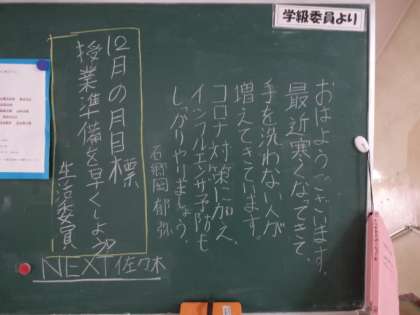 学級委員より
おはようございます。
最近寒くなってきて、
手を洗わない人が
増えてきています。
コロナ対策に加え、
インフルエンザ予防も
しっかりやりましょう。
石郷岡 郁弥
12月の月目標
授業準備を早くしよう
生活委員
NEXT 佐々木